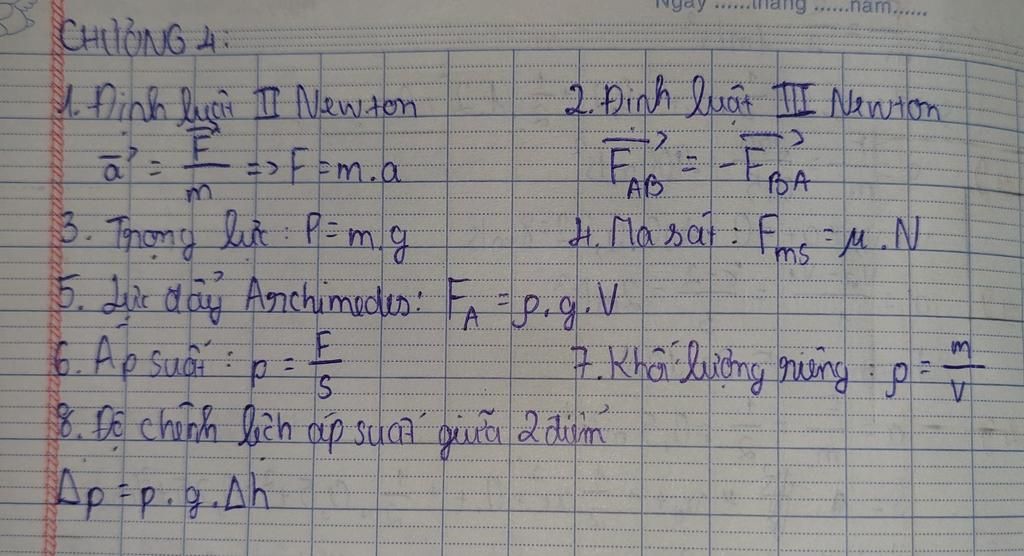 Ngày ......tháng ......năm......
CHƯƠNG 4:
1. Định luật II Newton
2. Định luật III Newton
a⃗ = F⃗/m => F = m.a
F⃗_AB = -F⃗_BA
3. Trọng lực: P = m.g
4. Ma sát: F_ms = μ.N
5. Lực đẩy Archimedes: F_A = ρ.g.V
6. Áp suất: p = F/S
7. Khối lượng riêng: ρ = m/V
8. Độ chênh lệch áp suất giữa 2 điểm
Δp = p.g.Δh